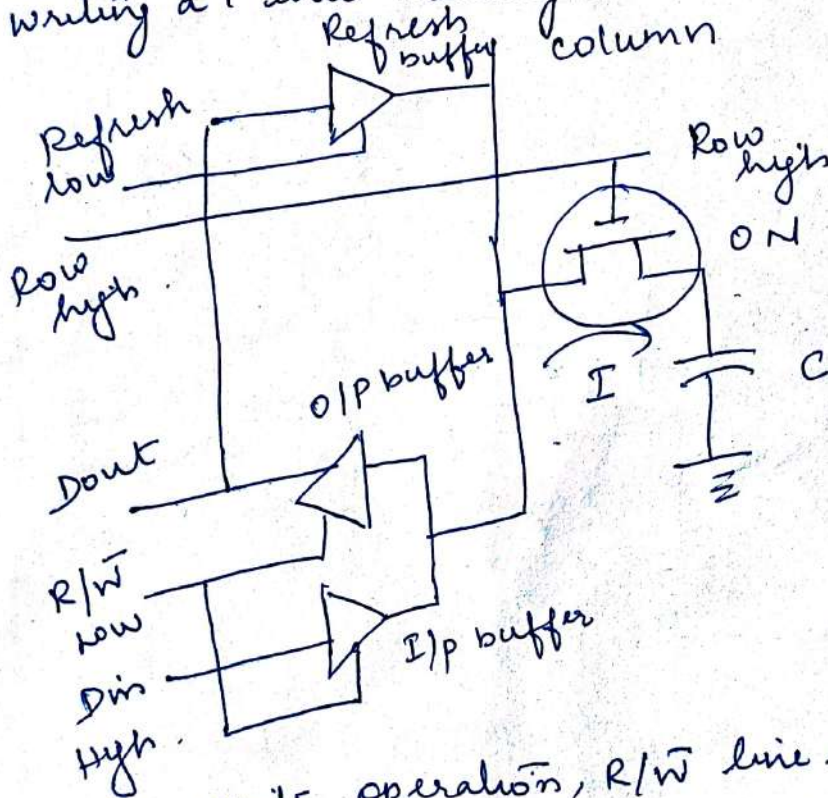 writing a 1 into
Refresh
buffer
column
Refresh
low
Row
high
ON
Row
high.
O/P buffer
I
C
Dout
R/W̄
Low
Din
High.
I/p buffer
operation, R/W̄ line